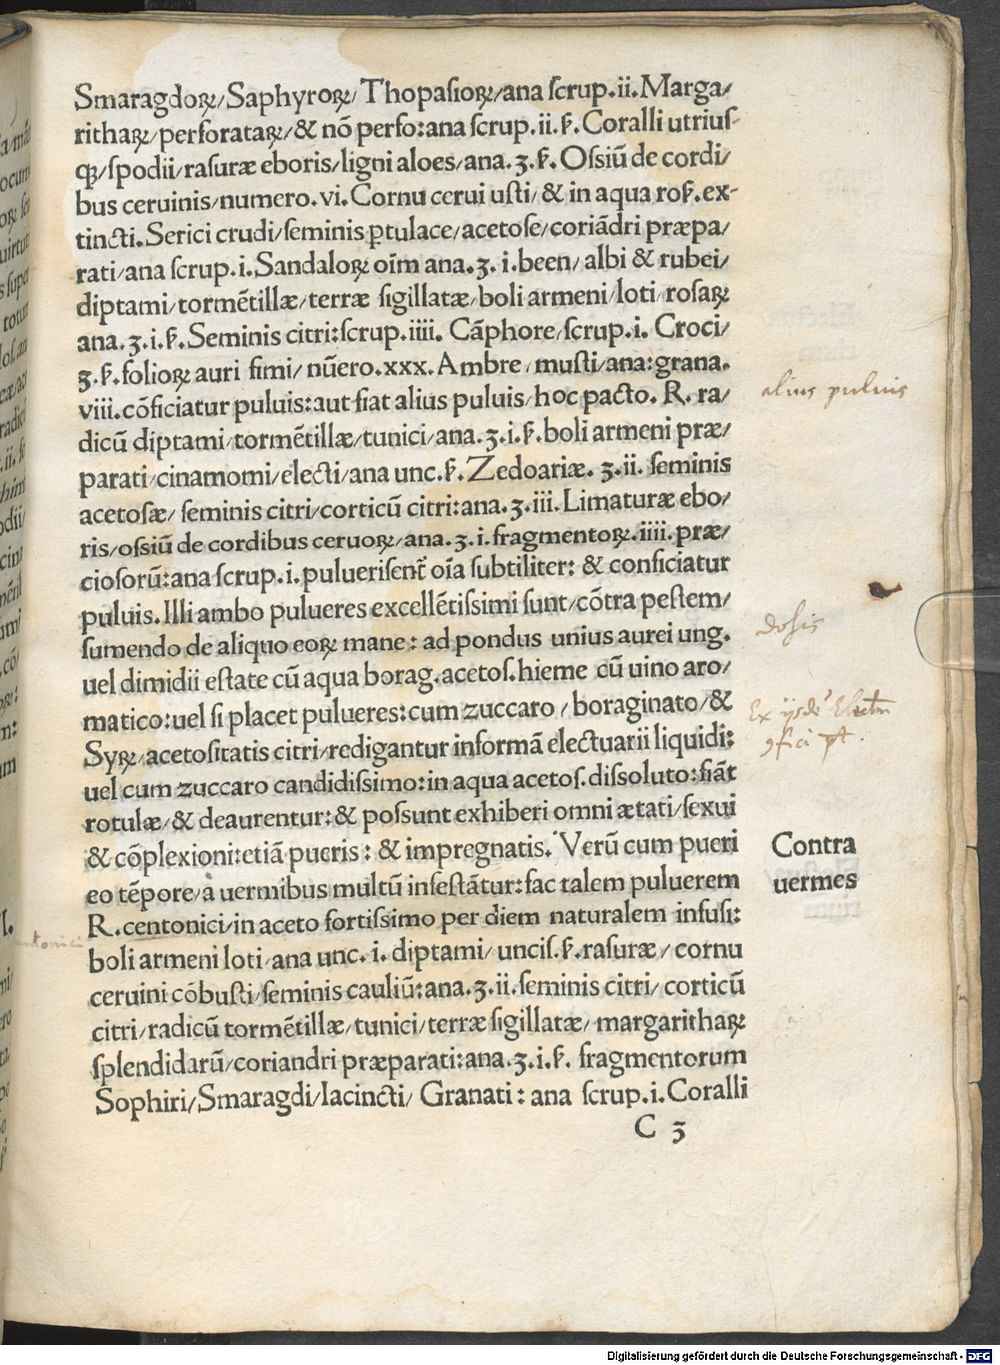 Smaragdoꝝ/Saphyroꝝ/Thopaſioꝝ/ana ſcrup.ii.Marga/
rithaꝝ/perforataꝝ/& nō perfo:ana ſcrup.ii.ẜ.Coralli utriuſ
qꝫ/ſpodii/raſuræ eboris/ligni aloes/ana.ʒ.ẜ.Oſſiū de cordi/
bus ceruinis/numero.vi.Cornu cerui uſti/& in aqua roẜ.ex-
tincti.Serici crudi/ſeminis ꝑtulace/acetoſe/coriādri præpa/
rati/ana ſcrup.i.Sandaloꝝ oīm ana.ʒ.i.been/albi & rubei/
diptami/tormētillæ/terræ ſigillatæ/boli armeni/loti/roſaꝝ
ana.ʒ.i.ẜ.Seminis citri:ſcrup.iiii. Cāphore/ſcrup.i. Croci/
ʒ.ẜ.folioꝝ auri fimi/nūero.xxx.Ambre/muſti/ana:grana.
viii.cōficiatur puluis:aut fiat alius puluis/hoc pacto. R. ra/
dicū diptami/tormētillæ/tunici/ana.ʒ.i.ẜ.boli armeni præ/
parati/cinamomi/electi/ana unc.ẜ.Zedoariæ. ʒ.ii. ſeminis
acetoſæ/ ſeminis citri/corticū citri:ana.ʒ.iii.Limaturæ ebo/
ris/oſſiū de cordibus ceruoꝝ/ana.ʒ.i.fragmentoꝝ.iiii.præ/
cioſorū:ana ſcrup.i.pulueriſent̄ oīa ſubtiliter: & conficiatur
puluis.Illi ambo pulueres excellētiſſimi ſunt/cōtra peſtem/
ſumendo de aliquo eoꝝ mane: ad pondus unius aurei ung.
uel dimidii eſtate cū aqua borag.acetoſ.hieme cū uino aro/
matico:uel ſi placet pulueres:cum zuccaro/boraginato/&
Syꝝ/acetoſitatis citri/redigantur informā electuarii liquidi:
uel cum zuccaro candidiſſimo:in aqua acetoſ.diſſoluto:fiāt
rotulæ/& deaurentur:& poſſunt exhiberi omni ætati/ſexui
& cōplexioni:etiā pueris: & impregnatis. Verū cum pueri
eo tēpore/a uermibus multū infeſtātur:fac talem puluerem
R.centonici/in aceto fortiſſimo per diem naturalem infuſi:
boli armeni loti/ana unc.i.diptami/unciſ.ẜ.raſuræ/cornu
ceruini cōbuſti/ſeminis cauliū:ana.ʒ.ii.ſeminis citri/corticū
citri/radicū tormētillæ/tunici/terræ ſigillatæ/margarithaꝝ
ſplendidarū/coriandri præparati:ana.ʒ.i.ẜ. fragmentorum
Sophiri/Smaragdi/Iacincti/ Granati: ana ſcrup.i.Coralli
C 3
alius puluis
dosis
Contra
uermes
Digitalisierung gefördert durch die Deutsche Forschungsgemeinschaft - DFG